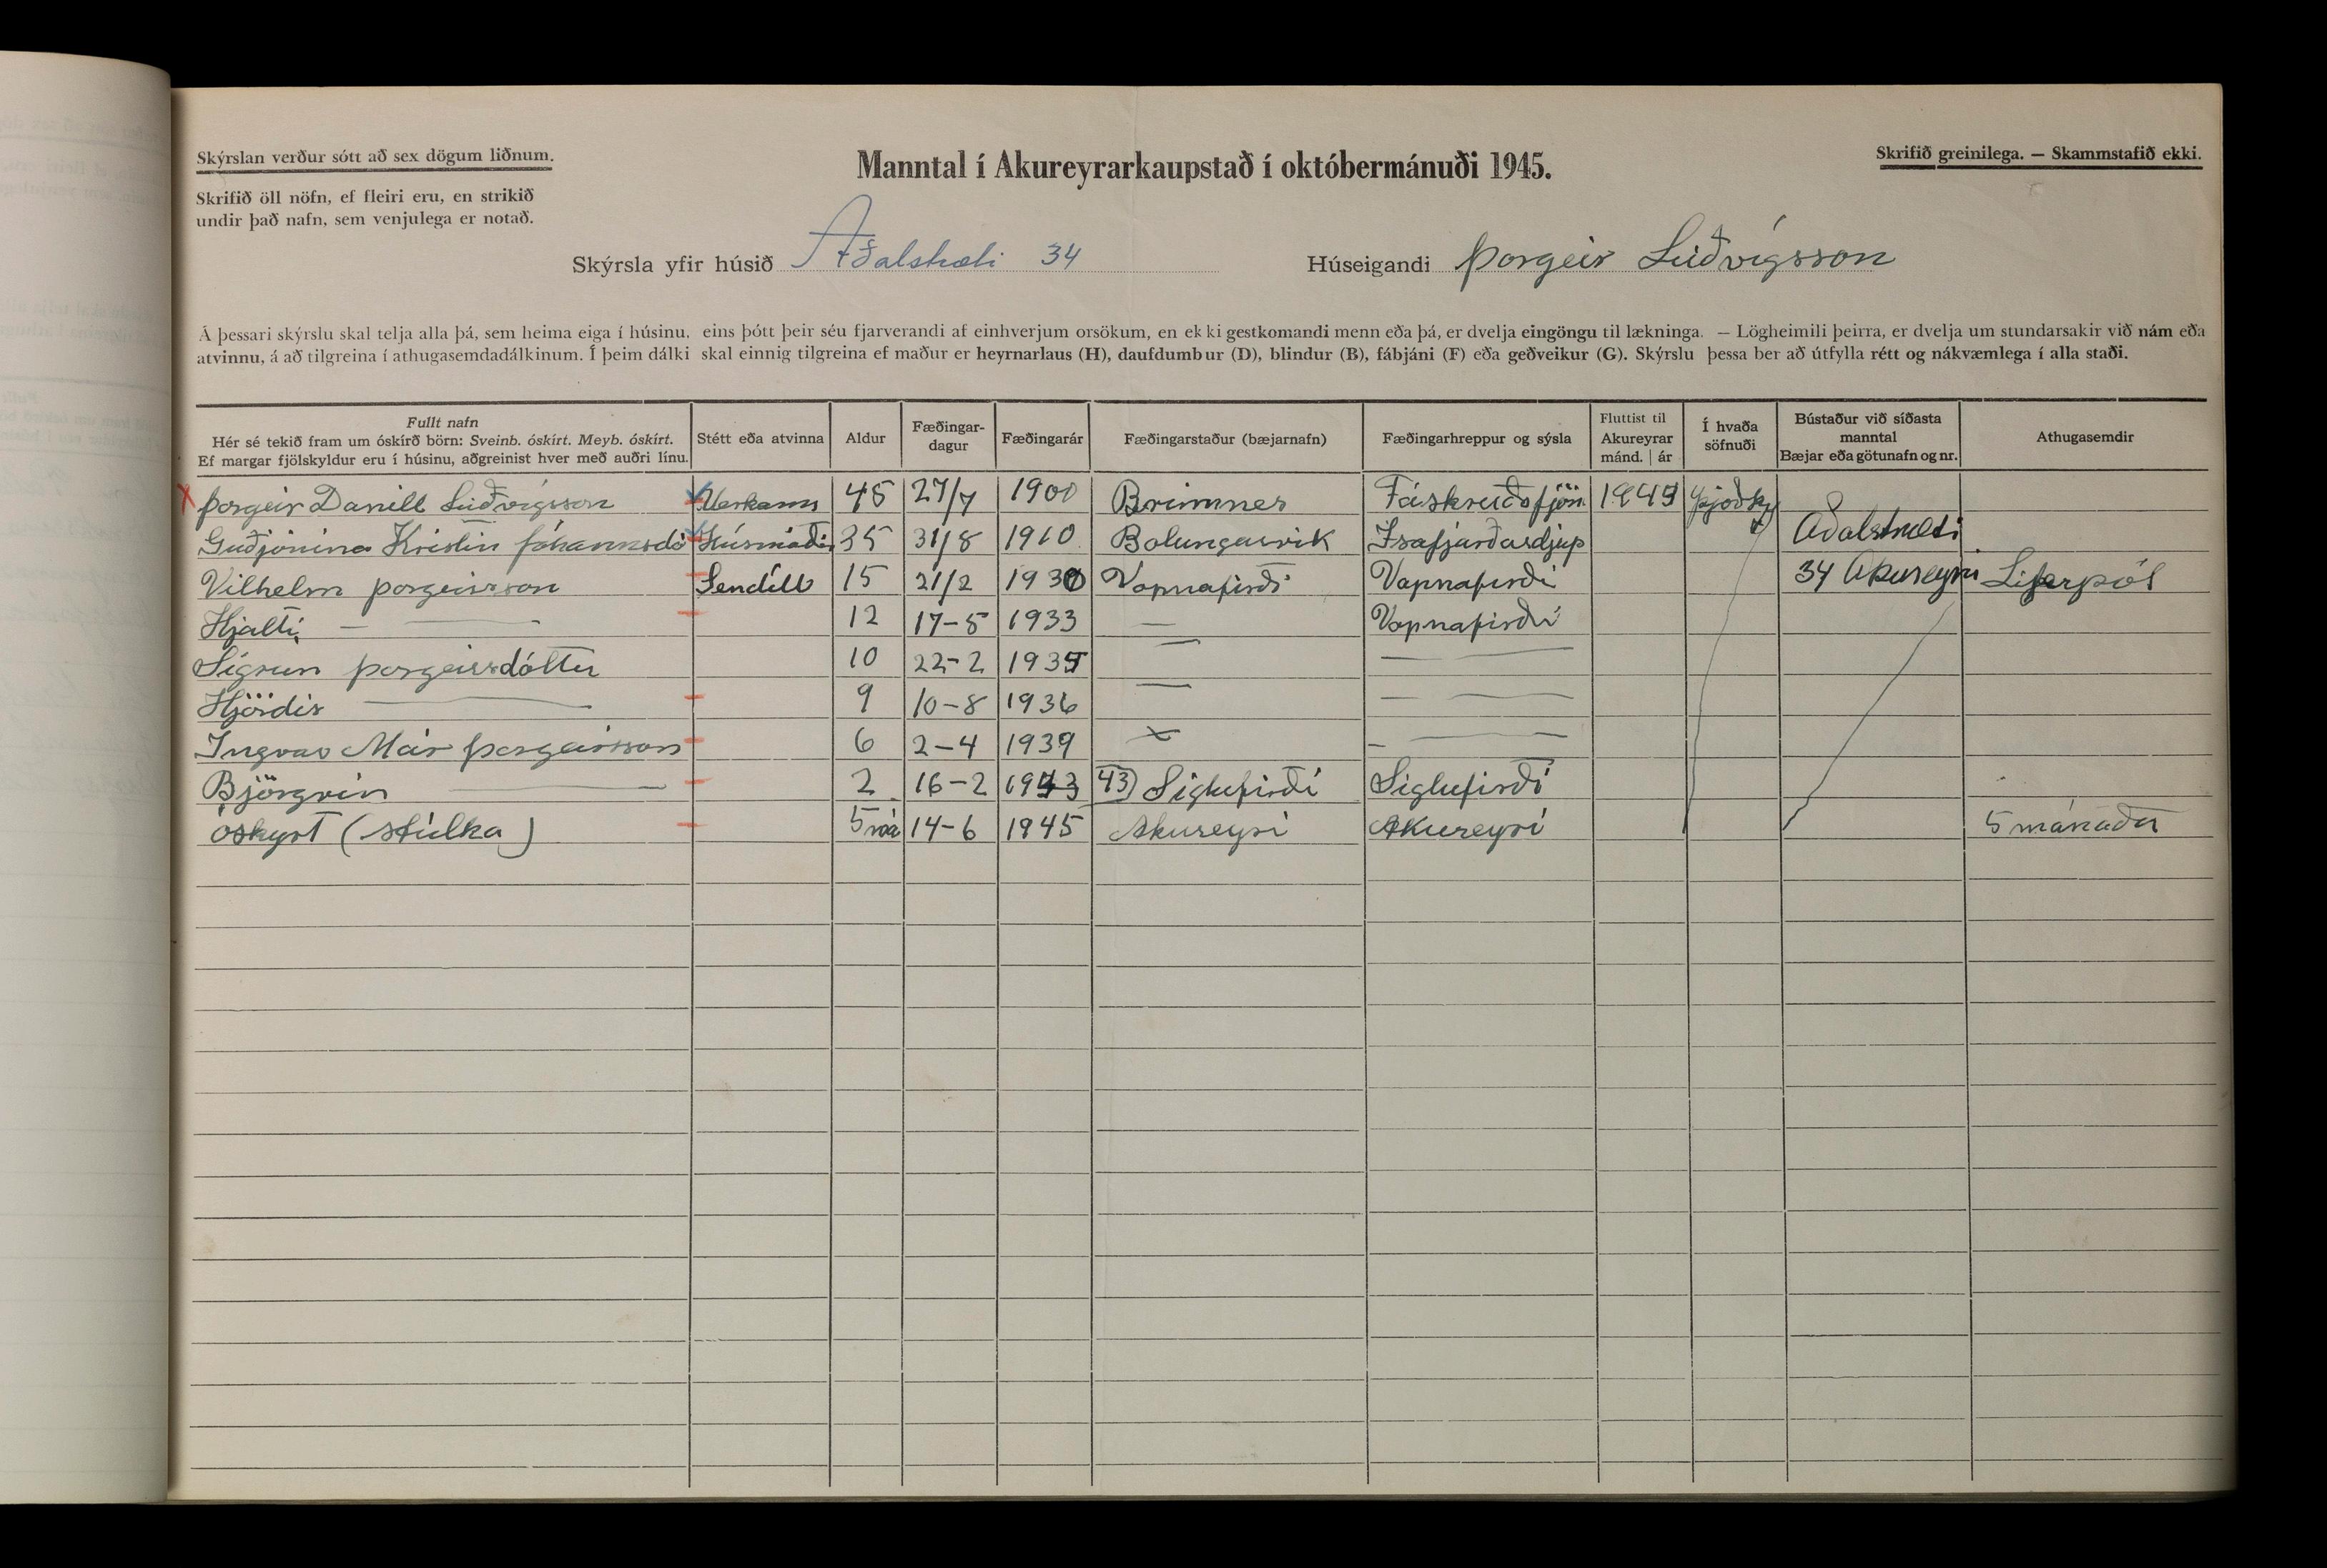 Skýrslan verður sótt að sex dögum liðnum.
Skrifið öll nöfn, ef fleiri eru, en strikið
undir það nafn, sem venjulega er notað.
Manntal í Akureyrarkaupstað í októbermánuði 1945.
Skrifið greinilega. — Skammstafið ekki.
Skýrsla yfir húsið Aðalstræti 34
Húseigandi Þorgeir Lúðvígsson
Á þessari skýrslu skal telja alla þá, sem heima eiga í húsinu, eins þótt þeir séu fjarverandi af einhverjum orsökum, en ekki gestkomandi menn eða þá, er dvelja eingöngu til lækninga. — Lögheimili þeirra, er dvelja um stundarsakir við nám eða
atvinnu, á að tilgreina í athugasemdadálkinum. Í þeim dálki skal einnig tilgreina ef maður er heyrnarlaus (H), daufdumbur (D), blindur (B), fábjáni (F) eða geðveikur (G). Skýrslu þessa ber að útfylla rétt og nákvæmlega í alla staði.
Fullt nafn
Hér sé tekið fram um óskírð börn: Sveinb. óskírt. Meyb. óskírt.
Ef margar fjölskyldur eru í húsinu, aðgreinist hver með auðri línu.
Stétt eða atvinna
Aldur
Fæðingar-
dagur
Fæðingarár
Fæðingarstaður (bæjarnafn)
Fæðingarhreppur og sýsla
Fluttist til
Akureyrar
mánd. | ár
Í hvaða
söfnuði
Bústaður við síðasta
manntal
Bæjar eða götunafn og nr.
Athugasemdir
Þorgeir Daníll Lúðvígsson Verkam 45 27/7 1900 Brimnes Fáskruðsfjön 1943 Þjóðk
Guðjónína Kristín Jóhannsdó Húsmóðir 35 31/8 1910 Bolungarvik Isafjarðardjúp Aðalstræti
Vilhelm Þorgeirsson Sendill 15 21/2 1930 Vopnafirði Vapnafirði 34 Akureyri
Hjalti — — 12 17-5 1933 — Vopnafirði
Sigrun Þorgeirsdóttir 10 22-2 1935 — — —
Hjördis — 9 10-8 1936 — — —
Ingvar Már Þorgeirsson 6 2-4 1939 — — —
Björgvin — 2 16-2 1943 43) Siglufirði Siglufirði
óskyrt (stúlka) 5 má 14-6 1945 Akureyri Akureyri 5 mánaða